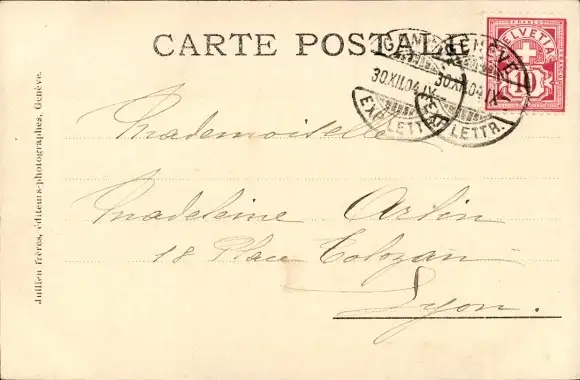 CARTE POSTALE
HELVETIA
FRANCO
10
GENÈVE
30.XII.04.IX
EXP. LETTR.
GENÈVE
30.XII.04.IX
EXP. LETTR.
Mademoiselle
Madeleine Arlin
18 Place Tolozan
Lyon.
Jullien frères, éditeurs-photographes, Genève.